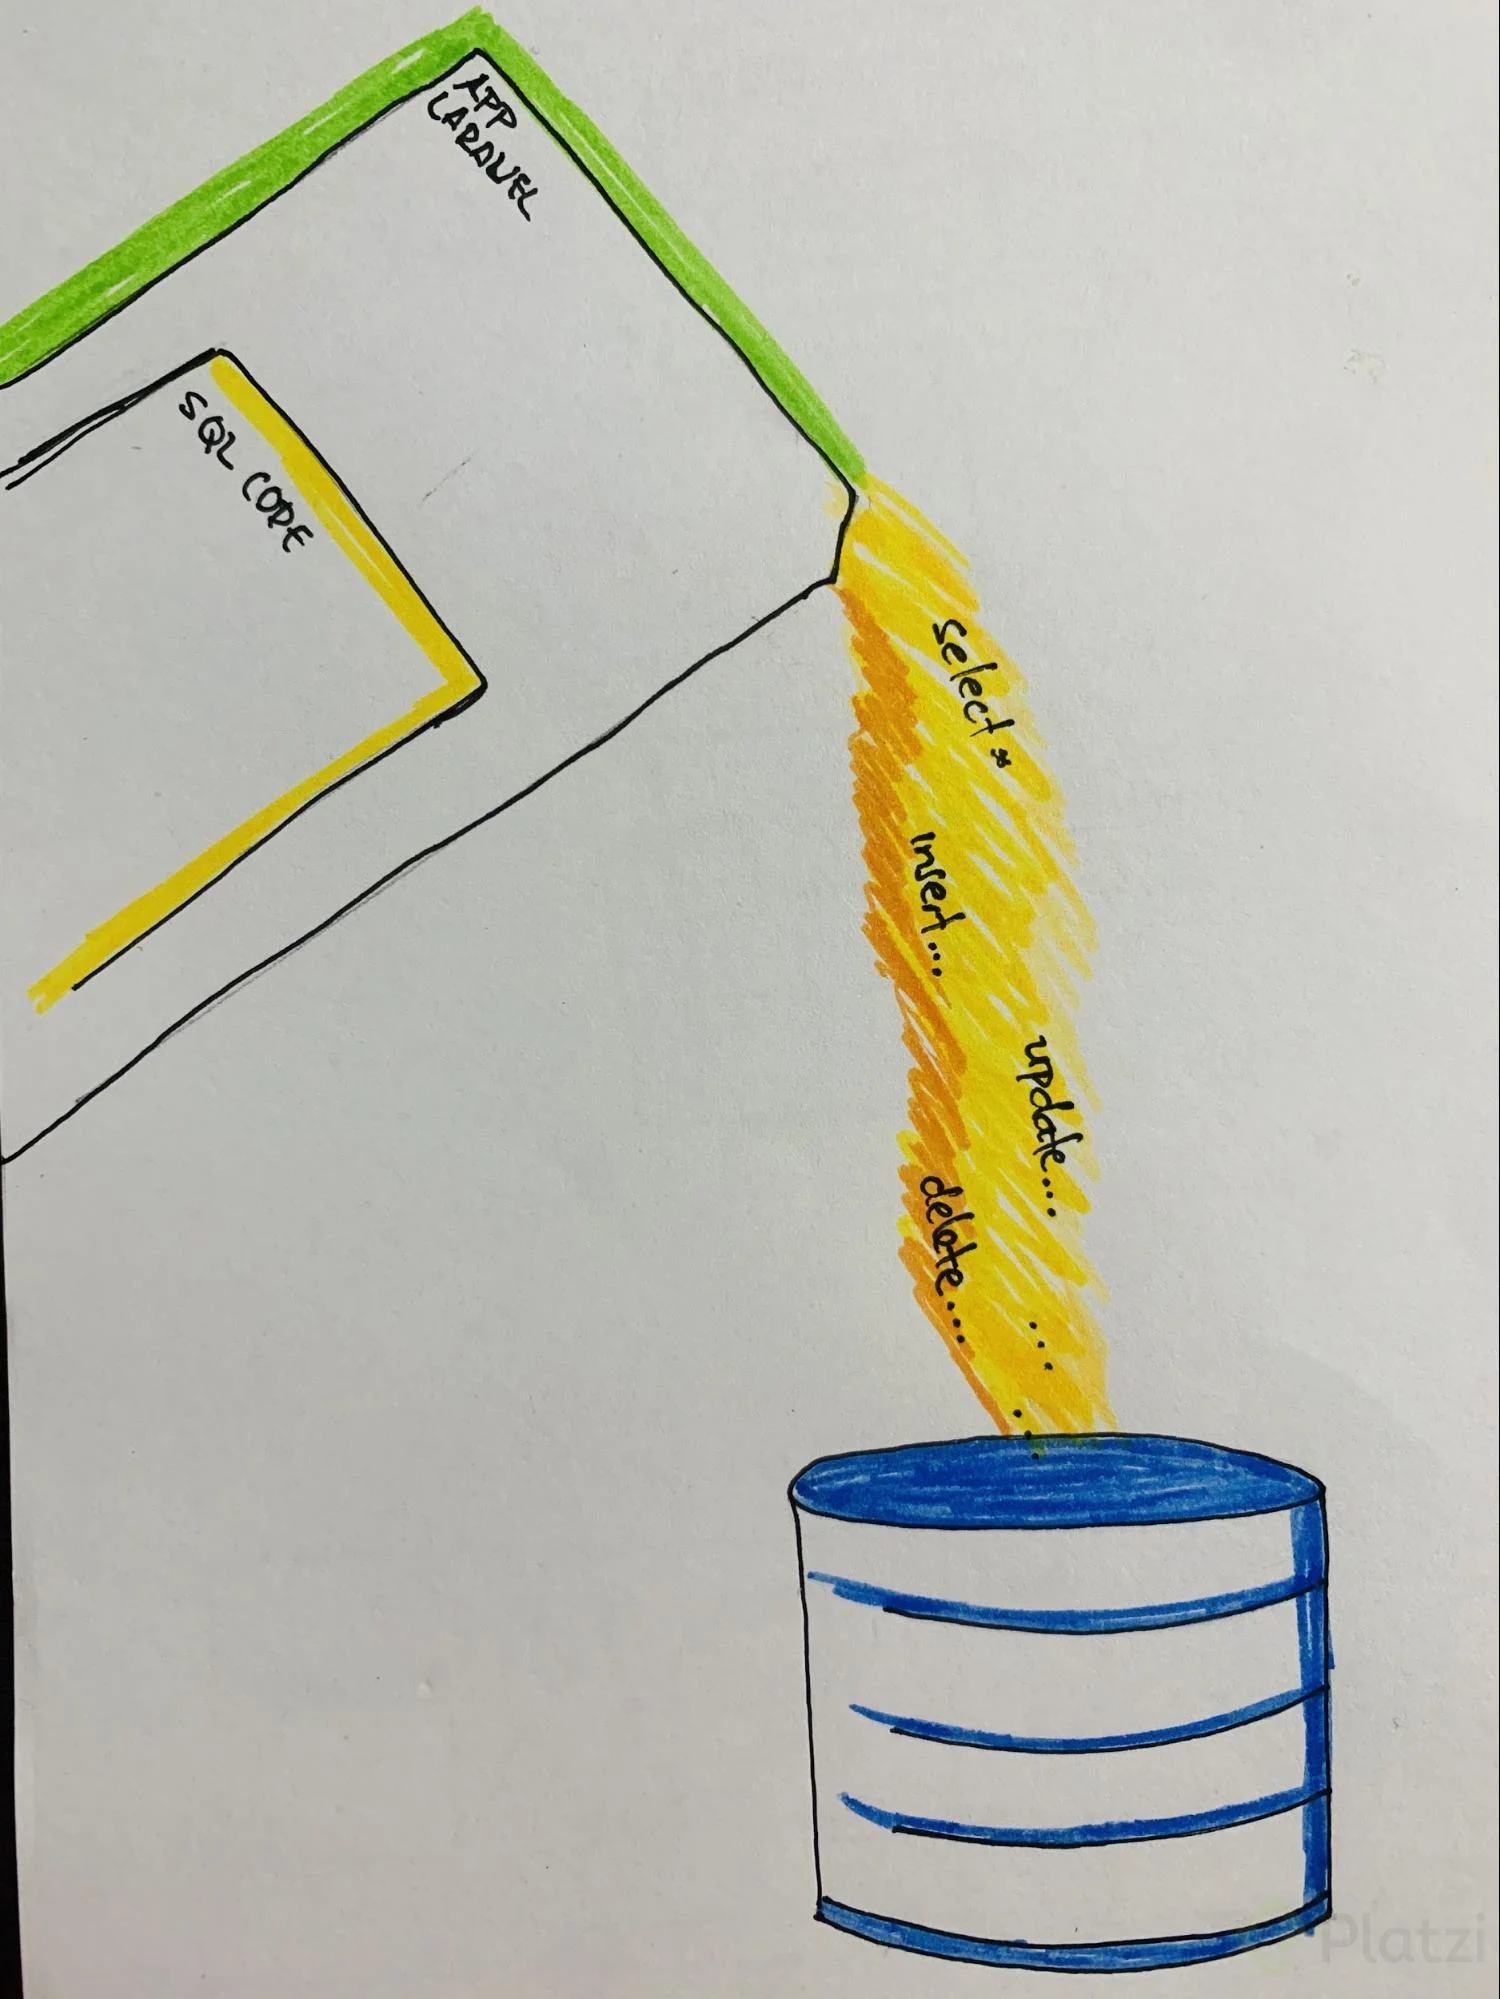 APP
LARAVEL
SQL CODE
select *
insert...
update...
delete....
...
...
Platzi